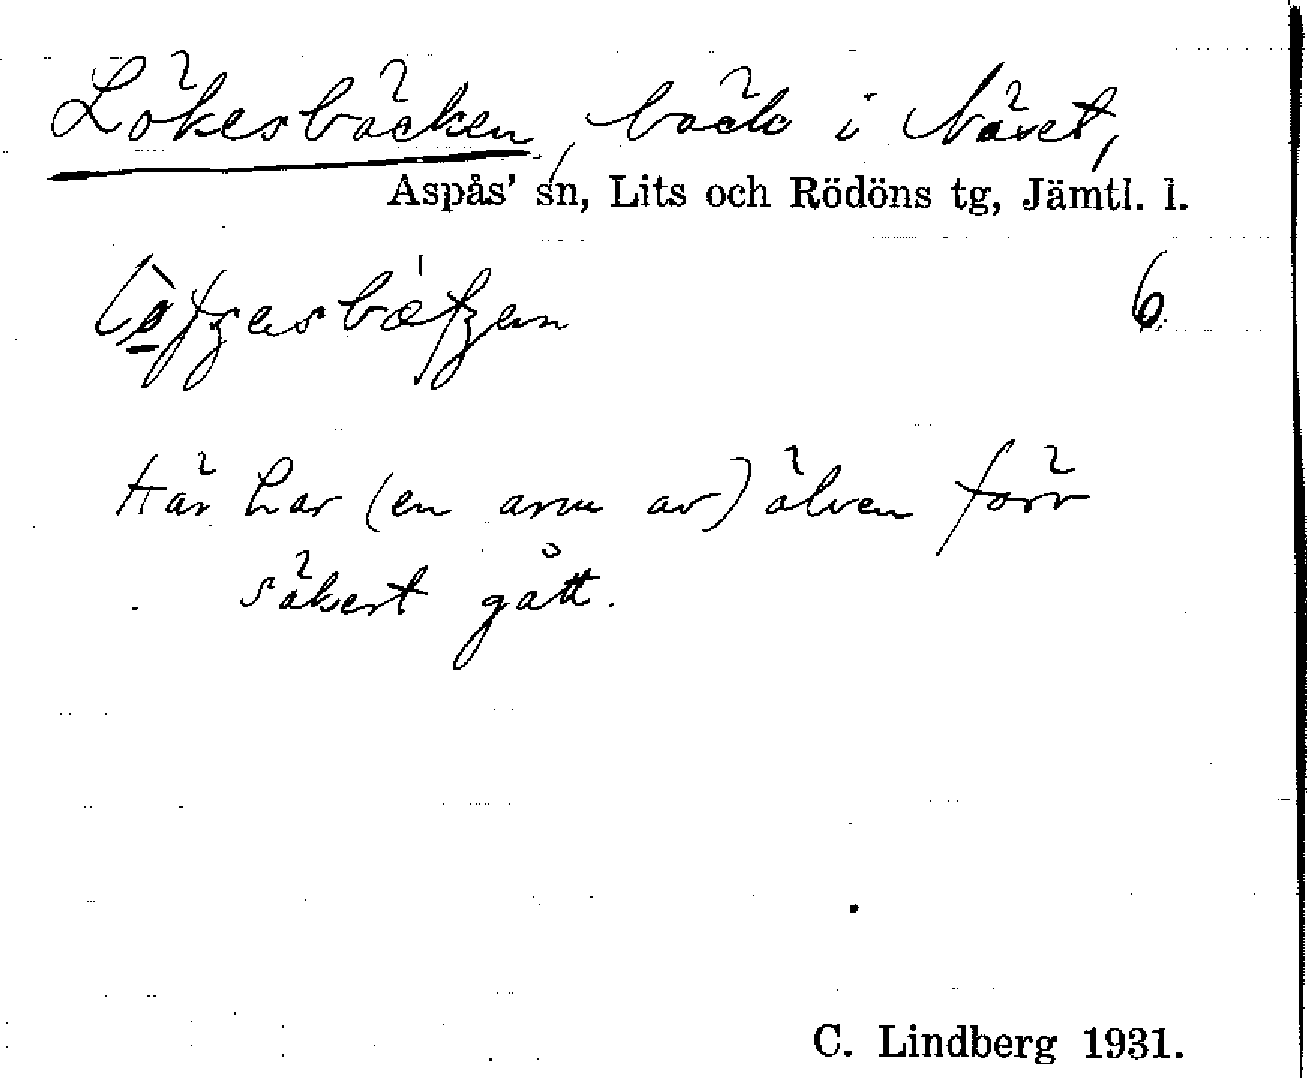 Lökesbäcken, bäck i Näset,
Aspås' sn, Lits och Rödöns tg, Jämtl. l.
6
Här har (en arm av) älven förr
säkert gått.
C. Lindberg 1931.